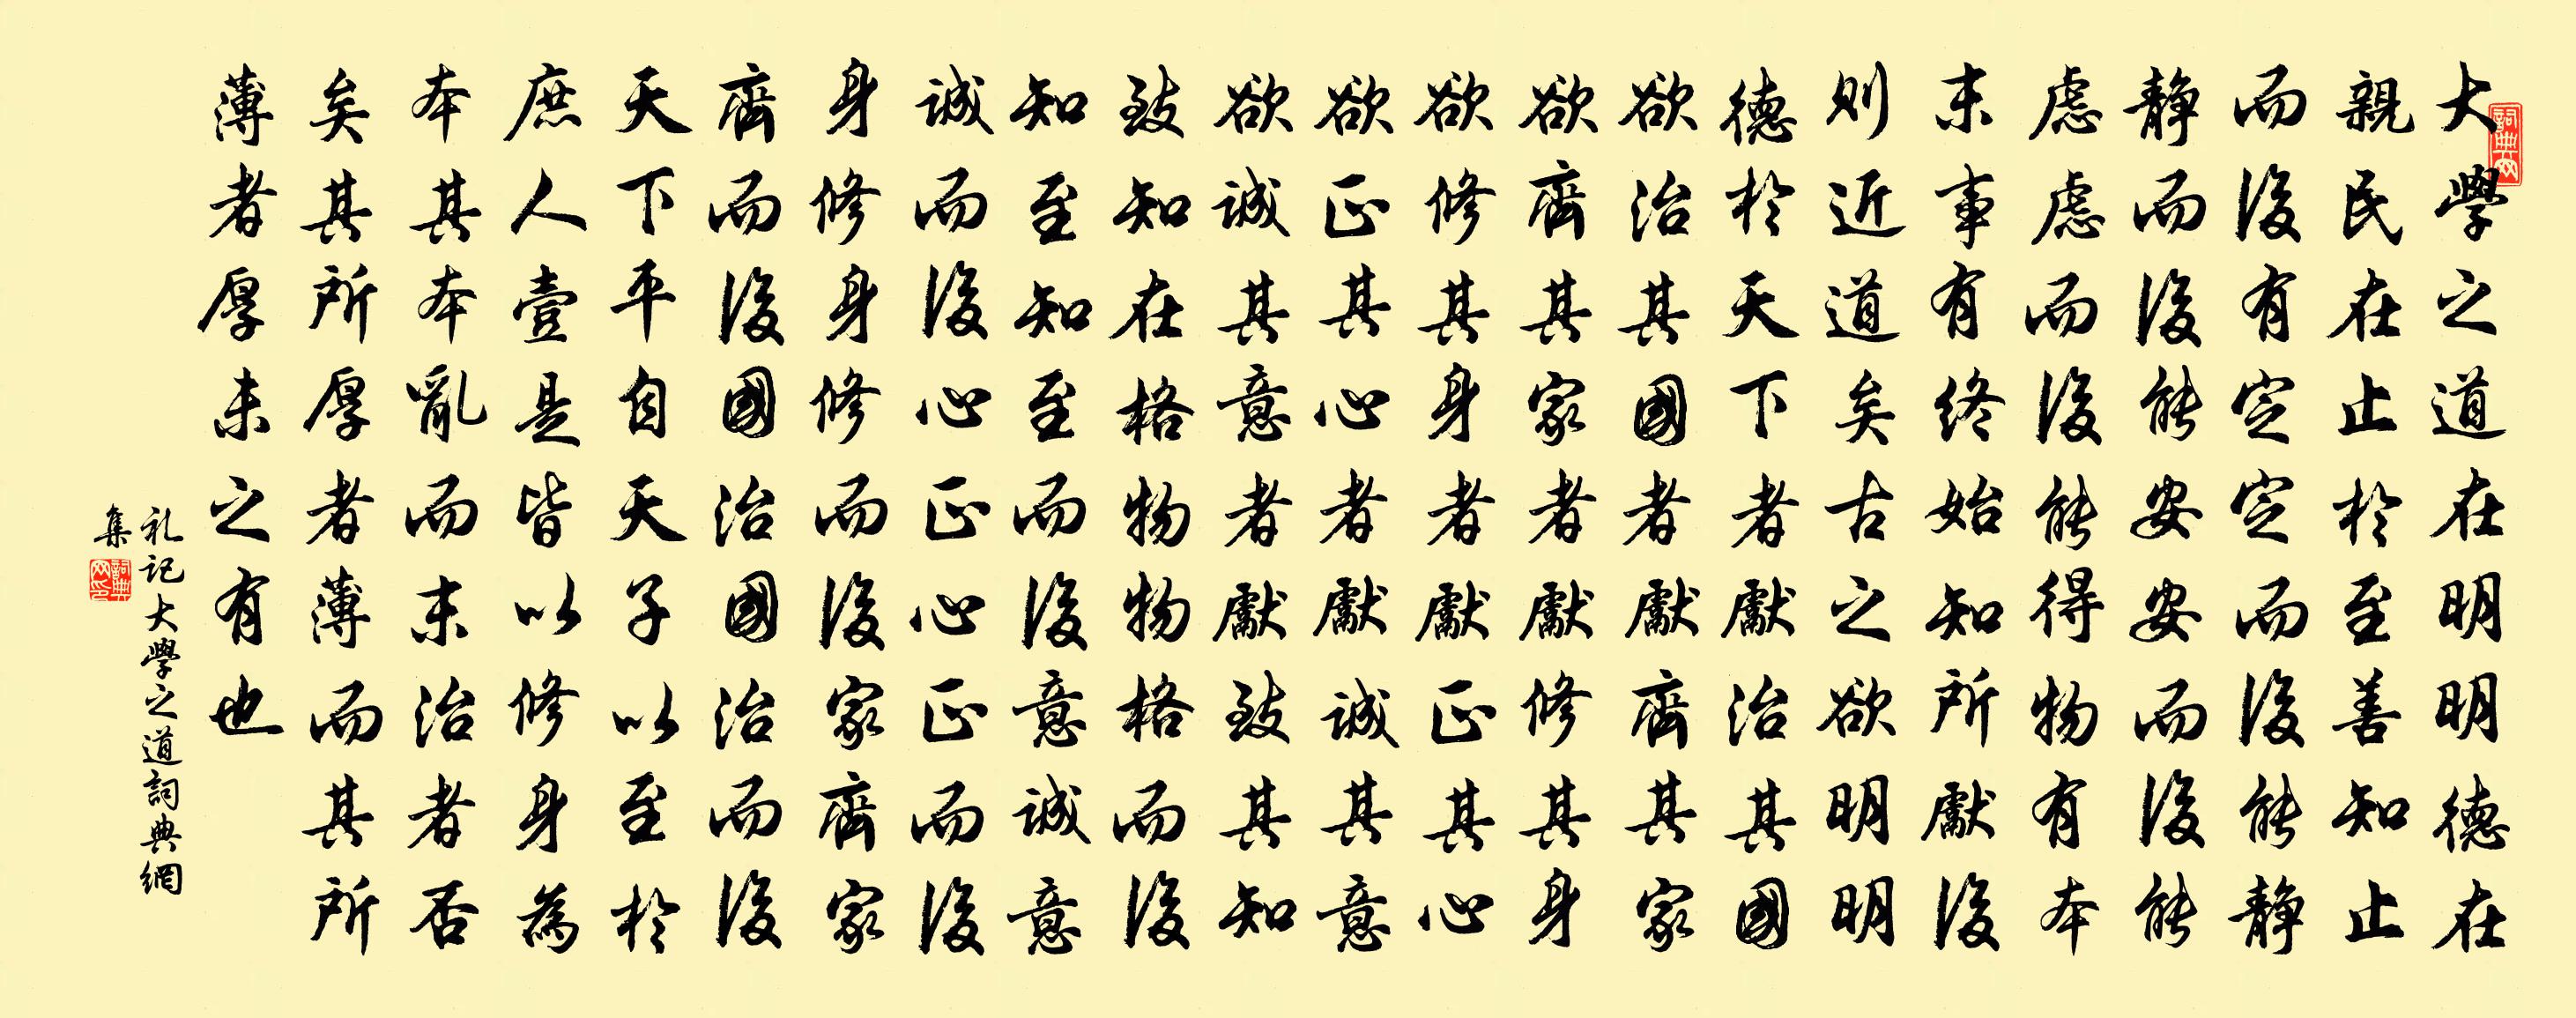 詞典网
大學之道在明明德在
親民在止於至善知止
而後有定定而後能靜
靜而後能安安而後能
慮慮而後能得物有本
末事有終始知所獻後
則近道矣古之欲明明
德於天下者獻治其國
欲治其國者獻齊其家
欲齊其家者獻修其身
欲修其身者獻正其心
欲正其心者獻誠其意
欲誠其意者獻致其知
致知在格物物格而後
知至知至而後意誠意
誠而後心正心正而後
身修身修而後家齊家
齊而後國治國治而後
天下平自天子以至於
庶人壹是皆以修身為
本其本亂而末治者否
矣其所厚者薄而其所
薄者厚未之有也
礼記大學之道詞典網
集
詞典
网印